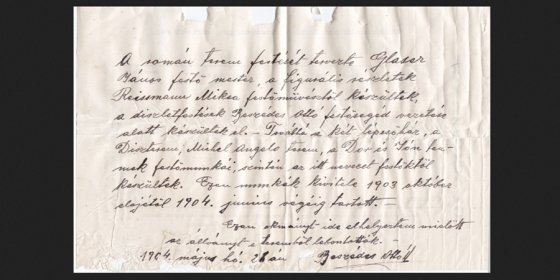 A román terem festését tervezte Glaser
János festő mester, a figurális részletek
Reissmann Miksa festőművésztől készültek,
a díszletfestések Beszédes Ottó festősegéd vezetése
alatt készültek el. – Továbbá a két lépcsőház, a
Díszterem, Michel Angelo terem, a Dór és Ión ter-
mek festőmunkái, szintén az itt nevezett festőktől
készültek. Ezen munkák kivitele 1903 október
elejétől 1904. junius végéig tartott. –
Ezen okmányt ide elhelyeztem mielőtt
az állványt a teremből lebontották. –
1904. május hó, 26 án Beszédes Ottó